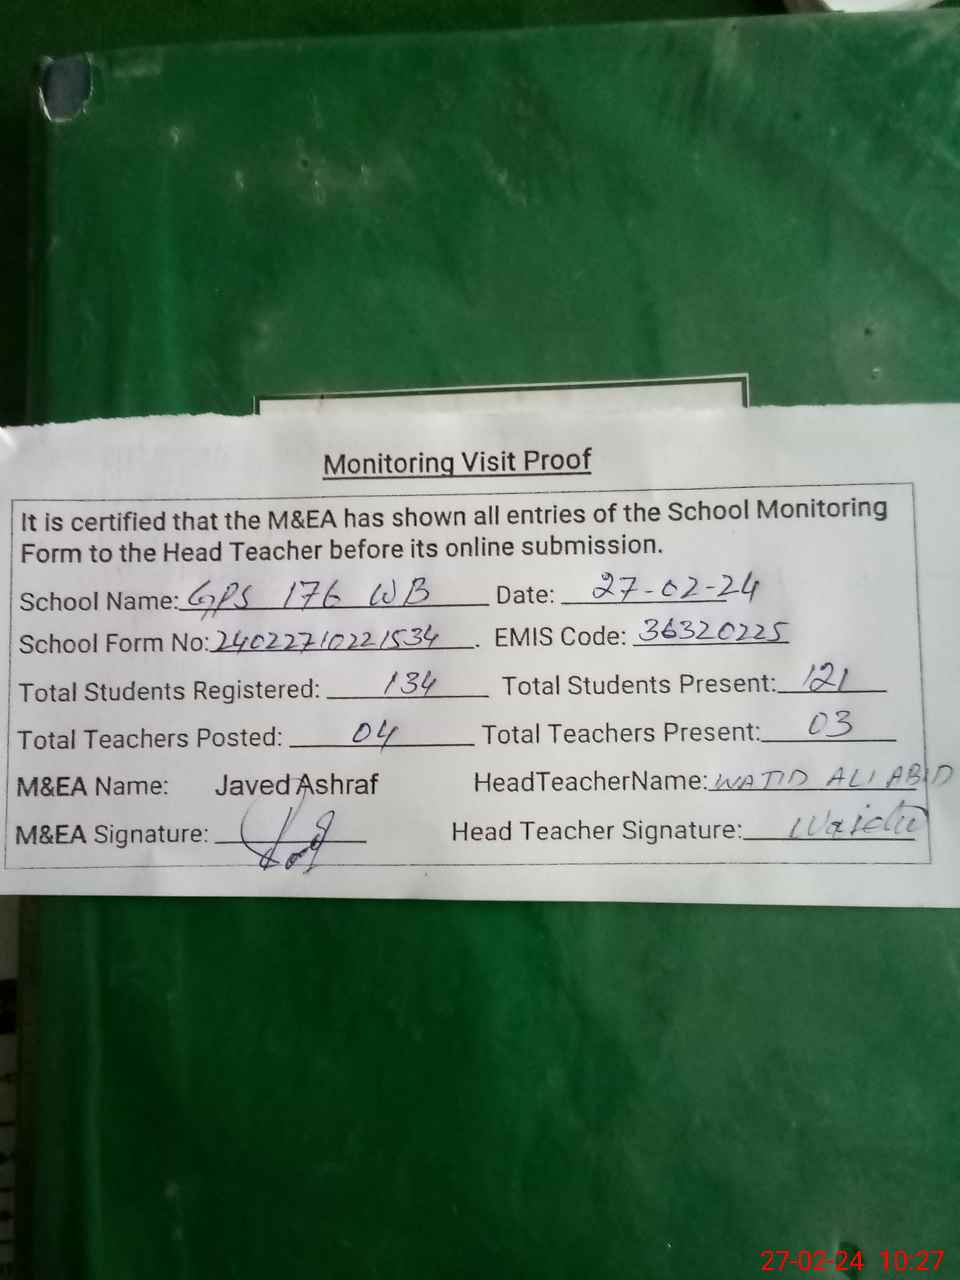 Monitoring Visit Proof
It is certified that the M&EA has shown all entries of the School Monitoring
Form to the Head Teacher before its online submission.
School Name: GPS 176 WB Date: 27-02-24
School Form No: 24022710221534. EMIS Code: 36320225
Total Students Registered: 134 Total Students Present: 121
Total Teachers Posted: 04 Total Teachers Present: 03
M&EA Name: Javed Ashraf HeadTeacherName: WAJID ALI ABID
M&EA Signature: Head Teacher Signature: Wajid
27-02-24 10:27